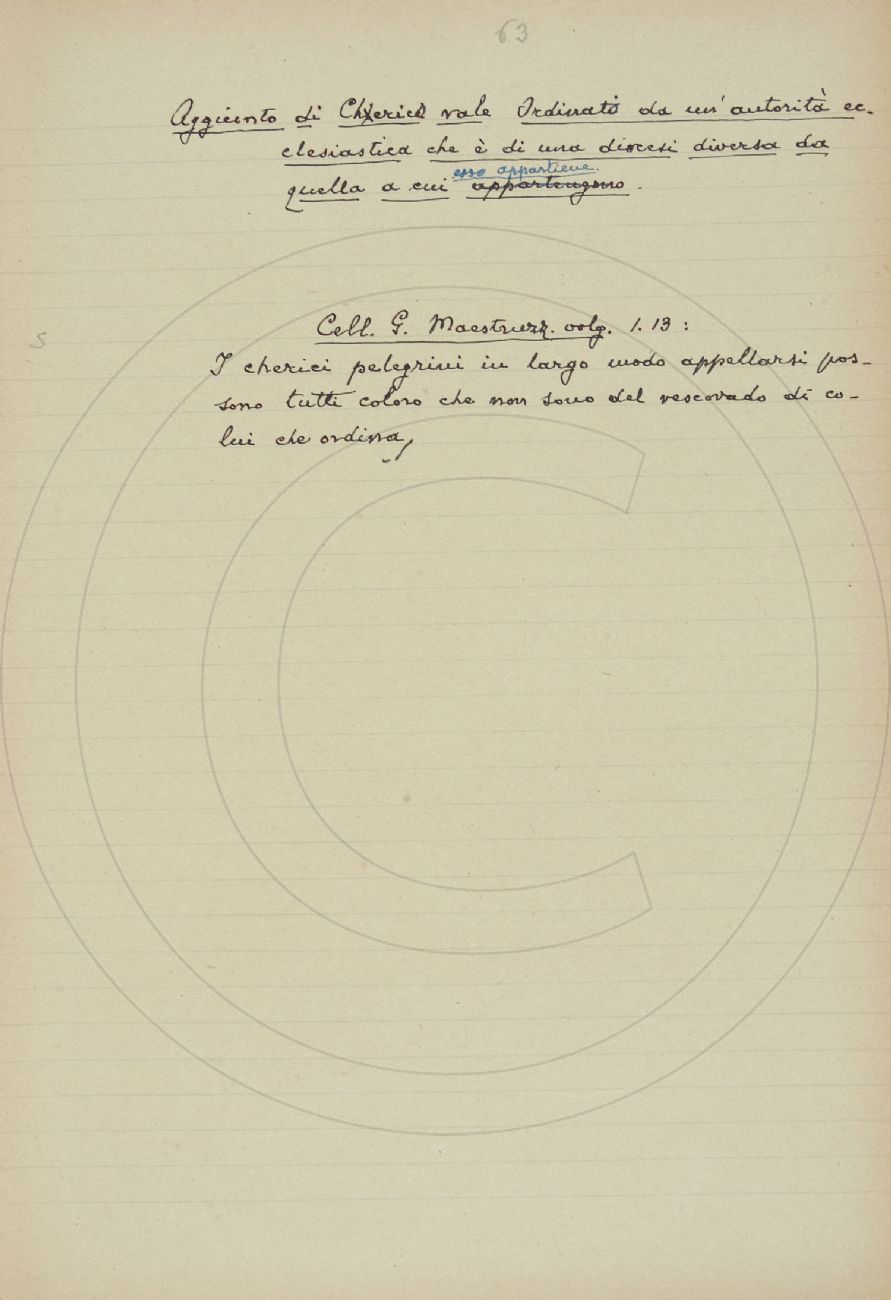 63
Aggiunto di Cherico vale Ordinato da un' autorità ec-
clesiastica che è di una diocesi diversa da
esso appartiene.
quella a cui appartengono.
Cell. G. Maestruzz. volg. 1. 13 :
I cherici pelegrini in largo modo appellarsi pos-
sono tutti coloro che non sono del vescovado di co-
lui che ordina,
S